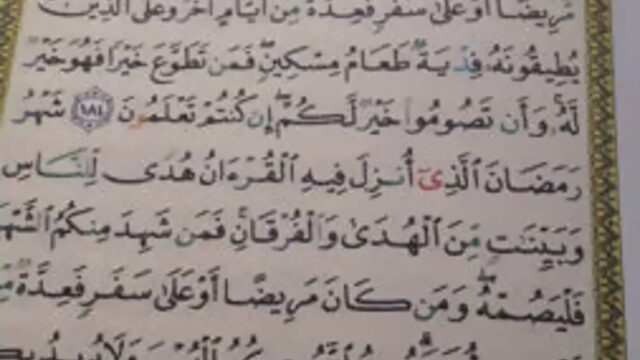 مَّرِيضًا أَوْ عَلَىٰ سَفَرٍ فَعِدَّةٌ مِّنْ أَيَّامٍ أُخَرَ وَعَلَى ٱلَّذِينَ
يُطِيقُونَهُۥ فِدْيَةٌ طَعَامُ مِسْكِينٍ فَمَن تَطَوَّعَ خَيْرًا فَهُوَ خَيْرٌ
لَّهُۥ وَأَن تَصُومُوا۟ خَيْرٌ لَّكُمْ إِن كُنتُمْ تَعْلَمُونَ ١٨٤ شَهْرُ
رَمَضَانَ ٱلَّذِىٓ أُنزِلَ فِيهِ ٱلْقُرْءَانُ هُدًى لِّلنَّاسِ
وَبَيِّنَٰتٍ مِّنَ ٱلْهُدَىٰ وَٱلْفُرْقَانِ فَمَن شَهِدَ مِنكُمُ ٱلشَّهْرَ
فَلْيَصُمْهُ وَمَن كَانَ مَرِيضًا أَوْ عَلَىٰ سَفَرٍ فَعِدَّةٌ